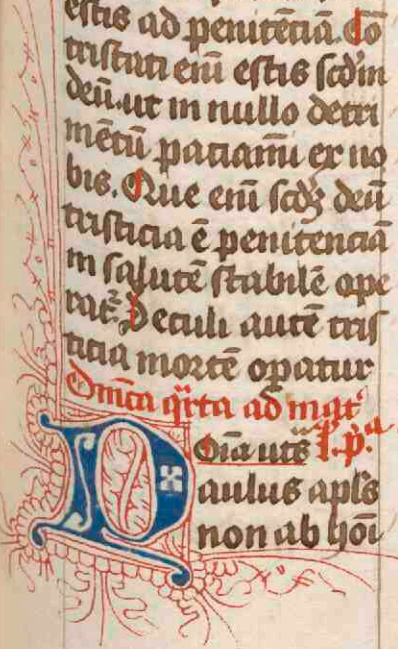 estis ad penitēciā. Cō
tristati em̄ estis scd'm
deū. ut in nullo detri
mētū patiami ex no
bis. Que em̄ scdȝ deū
tristicia ē penitenciā
in salutē stabilē ope
rat᷑. Seculi autē tris
ticia mortē op̄atur
Dn̄ica qr̄ta ad mat᷑
Oīa uts L. p.ᵃ
Paulus apl's
non ab hoī